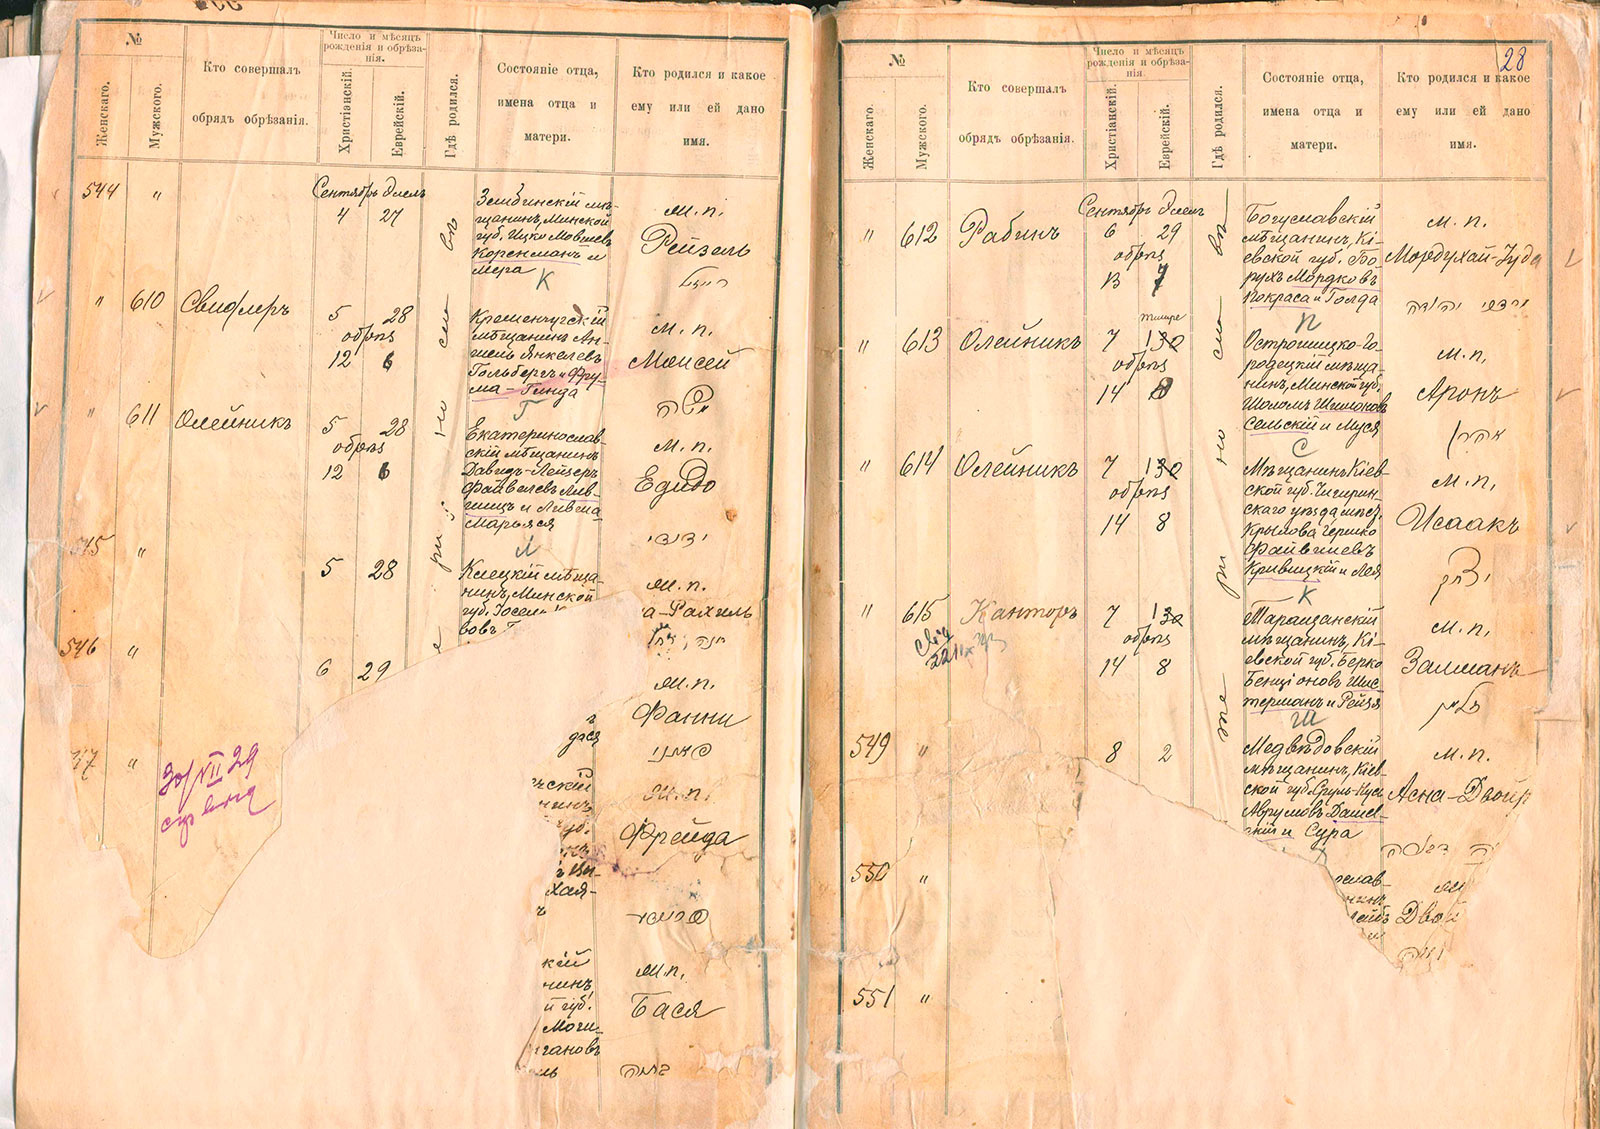 №
Женскаго.
Мужского.
Кто совершалъ
обрядъ обрѣзанія.
Число и мѣсяцъ
рожденія и обрѣза-
нія.
Христіанскій.
Еврейскій.
Гдѣ родился.
Состояніе отца,
имена отца и
матери.
Кто родился и какое
ему или ей дано
имя.
544 "
Сентябрь Элелъ
4 27
Зембинскій мѣ-
щанинъ, Минской
губ. Ицко Мовшевъ
Коренманъ и
Мера
К
м.п.
Рейзель
רייזל
" 610 Свифлеръ
5 28
обрѣз
12 6
Кременчугскій
мѣщанинъ Ан-
шель Янкелевъ
Гольбергъ и Фру-
ма-Гинда
Г
м.п.
Моисей
משה
" 611 Олейникъ
5 28
обрѣз
12 6
Екатеринослав-
скій мѣщанинъ
Давидъ-Лейзеръ
Файвелевъ Лив-
шицъ и Ливша-
Марьяся
Л
м.п.
Едидо
ידידי
545 "
5 28
Клецкій мѣща-
нинъ, Минской
губ. Іосел
вовъ
м.п.
а-Рахиль
546 "
6 29
м.п.
Фанни
פאני
дася
547 "
30/VII 29
скій
нинъ
уб.
м.п.
Фрейда
פריידא
хая-
кій
нинъ
й губ.
Моги-
гановъ
ль
м.п.
Бася
באסיה
въ
28
№
Женскаго.
Мужского.
Кто совершалъ
обрядъ обрѣзанія.
Число и мѣсяцъ
рожденія и обрѣза-
нія.
Христіанскій.
Еврейскій.
Гдѣ родился.
Состояніе отца,
имена отца и
матери.
Кто родился и какое
ему или ей дано
имя.
" 612 Рабинъ
Сентябрь Элелъ
6 29
обрѣз
13 7
Богуславскій
мѣщанинъ, Кі-
евской губ. Бо-
рухъ Мордковъ
Покраса и Голда
П
м.п.
Мордухай-Іуда
מרדכי יהודה
" 613 Олейникъ
тишре
7 1
обрѣз
14 8
Острошицко-Го-
родецкій мѣща-
нинъ, Минской губ.
Шоломъ Шлиомовъ
Сельскій и Муся
С
м.п.
Аронъ
אהרן
" 614 Олейникъ
7 1
обрѣз
14 8
Мѣщанинъ Кіев-
ской губ. Чигирин-
скаго уѣзда мѣст.
Крылова Гершко
Файвишевъ
Кривицкій и Лея
К
м.п.
Исаакъ
יצחק
" 615 Канторъ
7 1
обрѣз
14 8
Таращанскій
мѣщанинъ, Кі-
евской губ. Берко
Бенціоновъ Шис-
терманъ и Рейзя
Ш
м.п.
Залманъ
זלמן
549 "
8 2
Медвѣдовскій
мѣщанинъ, Кіев-
ской губ. Сруль-Куса
Аврумовъ Дашев-
скій и Сура
м.п.
Асна-Двойр
550 "
ослав-
нинъ
Двой
551 "
въ